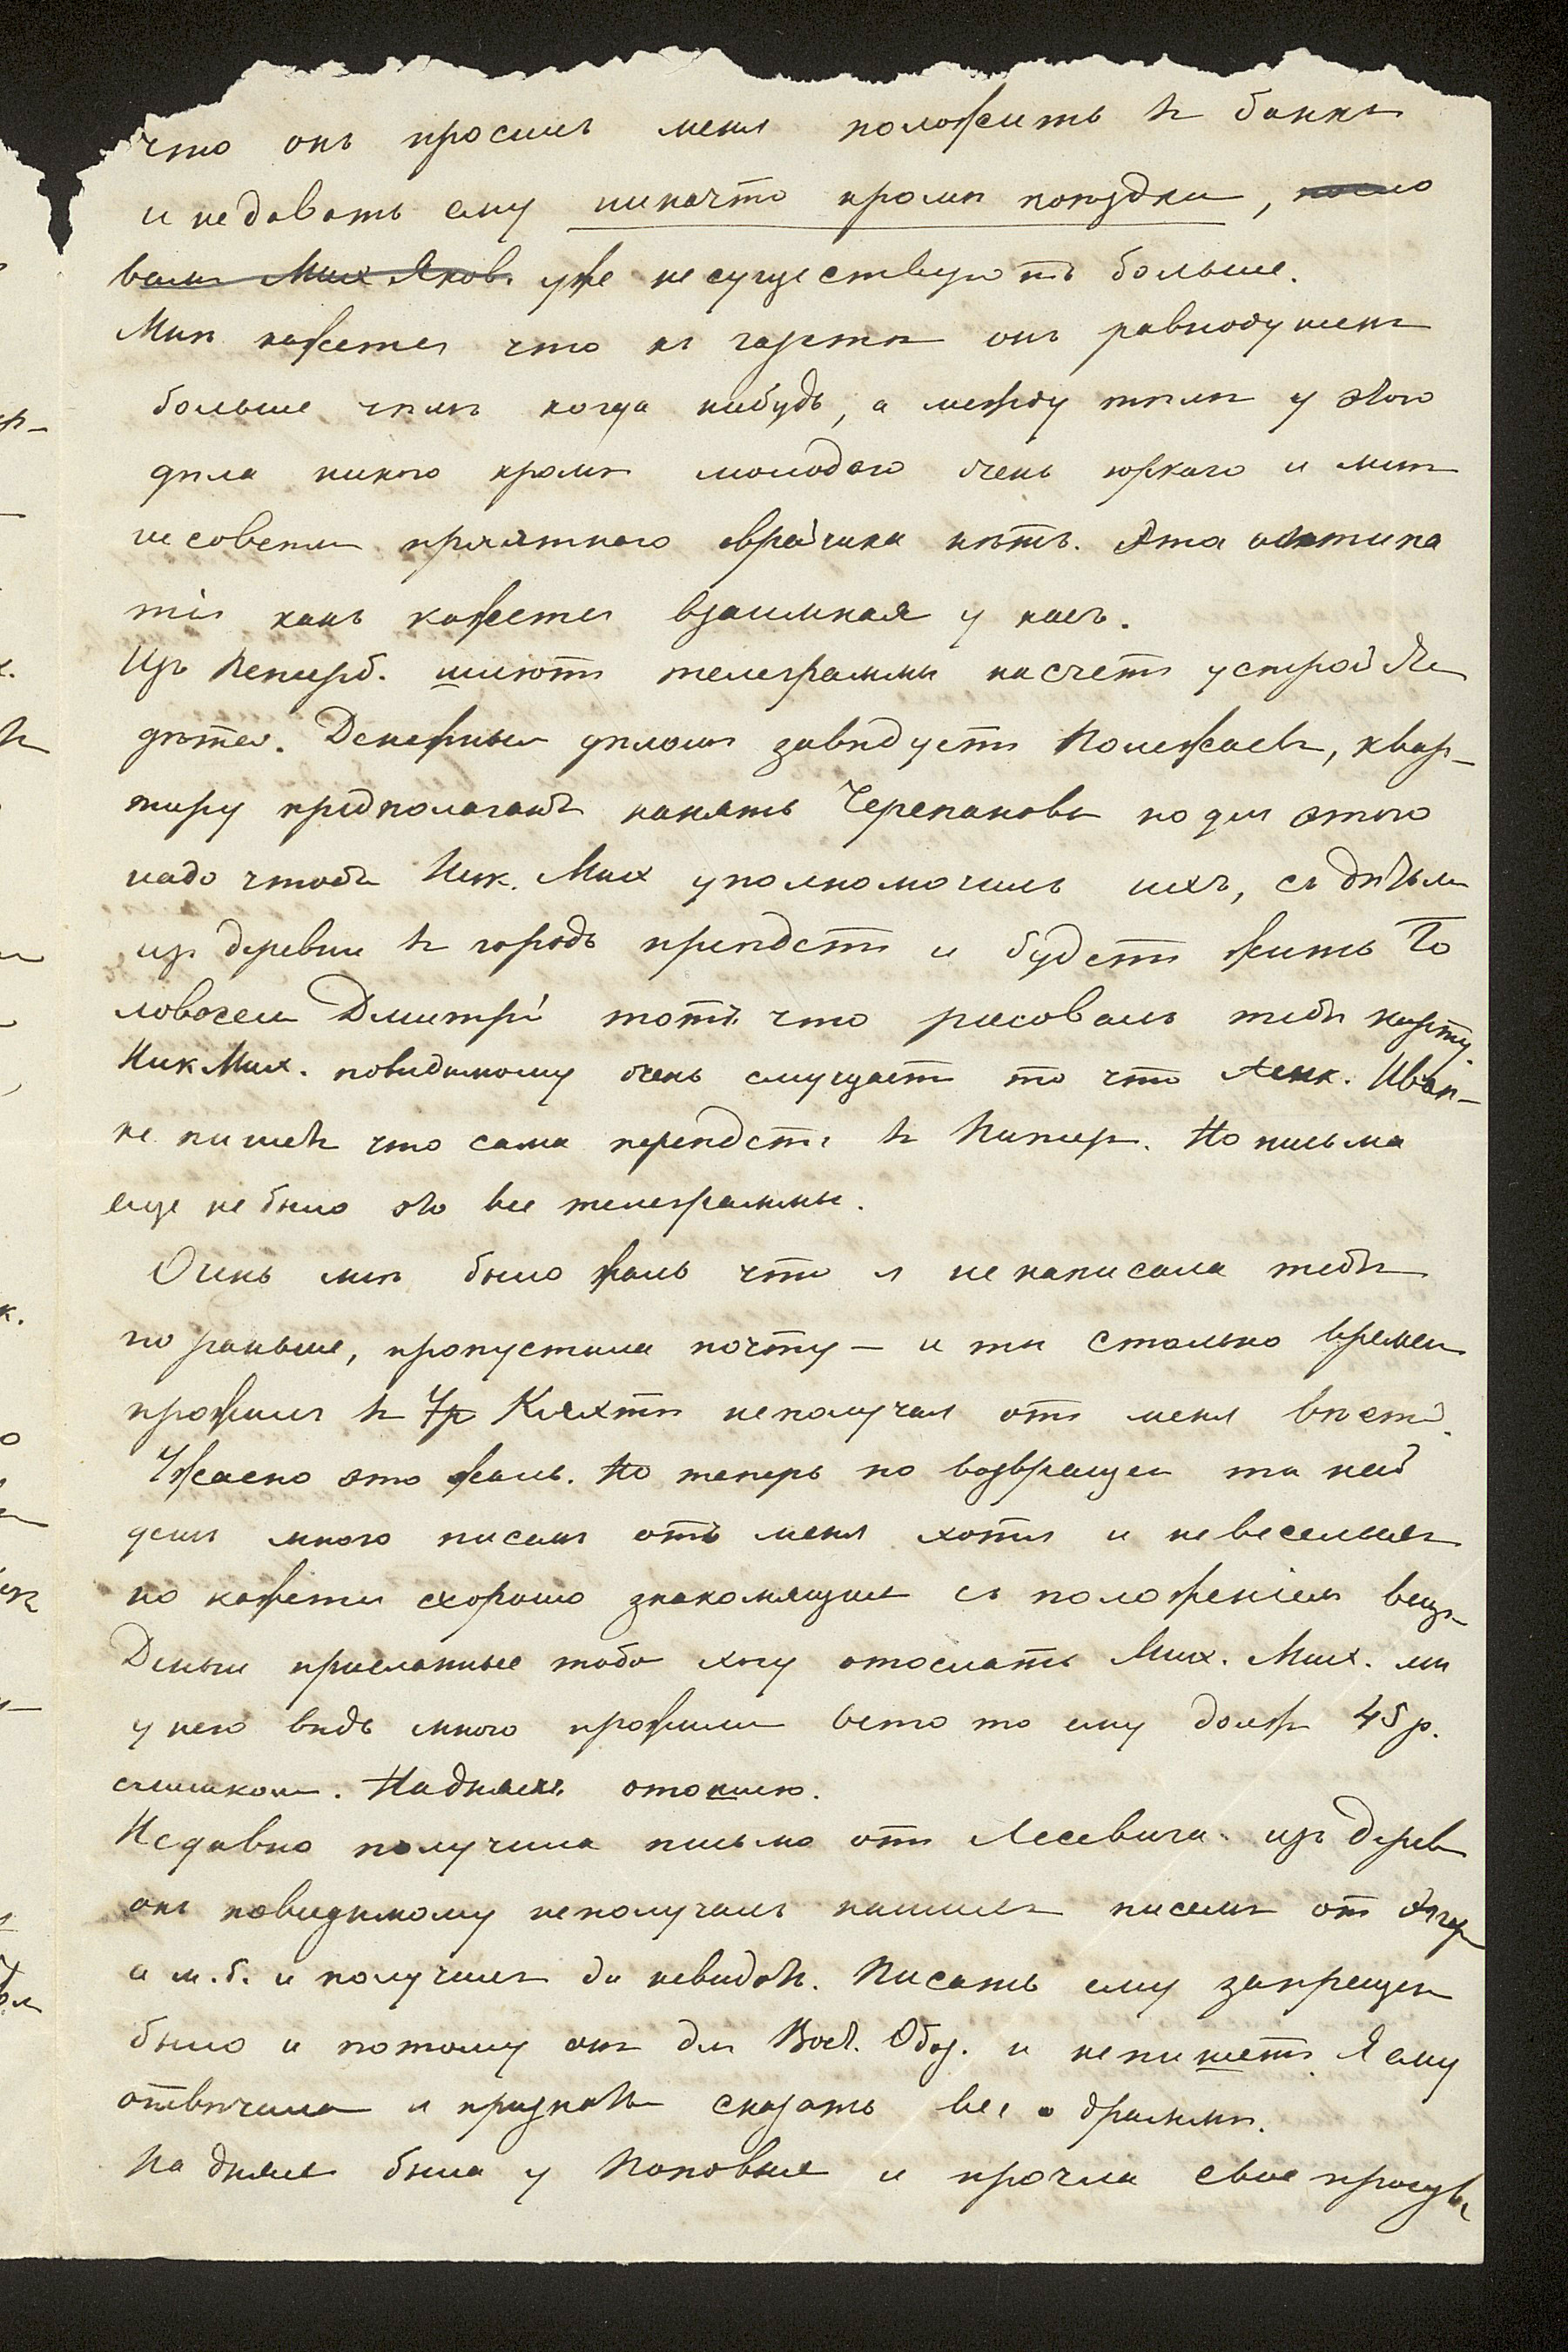 что онъ просилъ меня положить въ банкъ
и не давать ему ни на что кромѣ поѣздки,
вамъ Мих Яков. уже не существуютъ больше.
Мнѣ кажется что къ газетѣ онъ равнодушенъ
больше чѣмъ когда нибудь, а между тѣмъ у этого
дѣла никого кромѣ молодого очень юркаго и мнѣ
не совсѣмъ пріятнаго еврейчика нѣтъ. Эта антипа
тія какъ кажется взаимная у насъ.
Изъ Петерб. шлютъ телеграммы насчетъ устройства
дѣтей. Денежными дѣлами завѣдуетъ Полежаевъ, квар-
тиру предполагаютъ нанять Черепановы но для этого
надо чтобы Ник. Мих уполномочилъ ихъ, съ дѣтьми
изъ деревни въ городъ пріѣдетъ и будетъ жить Го
ловачевъ Дмитрій тотъ что рисовалъ тебѣ карту.
Ник Мих. повидимому очень смущаетъ то что Алек. Иван-
не пишетъ что сама переѣдетъ въ Питер. Но письма
еще не было это все телеграммы.
Очень мнѣ было жаль что я не написала тебѣ
по раньше, пропустила почту — и ты столько времени
прожилъ въ Тр Кяхтѣ неполучая отъ меня вѣстей.
Ужасно это жаль. Но теперь по возвращен ты най
дешь много писемъ отъ меня хотя и невеселыхъ
но кажется хорошо знакомящихъ съ положеніемъ вещ-
Деньги присланные тобой хочу отослать Мих. Мих. мы
у него вѣдь много прожили всего то ему долж 45 р.
слишкомъ. На дняхъ отошлю.
Недавно получила письмо отъ Лесевича изъ дерев
онъ повидимому неполучалъ нашихъ писемъ от Ядр
а м.б. и получилъ да невидать. Писать ему запрещен
было и потому онъ для Вост. Обоз. и не пишетъ. Я ему
отвѣчала и пришлось сказать все о драммѣ.
На дняхъ была у Поповыхъ и прочла свое